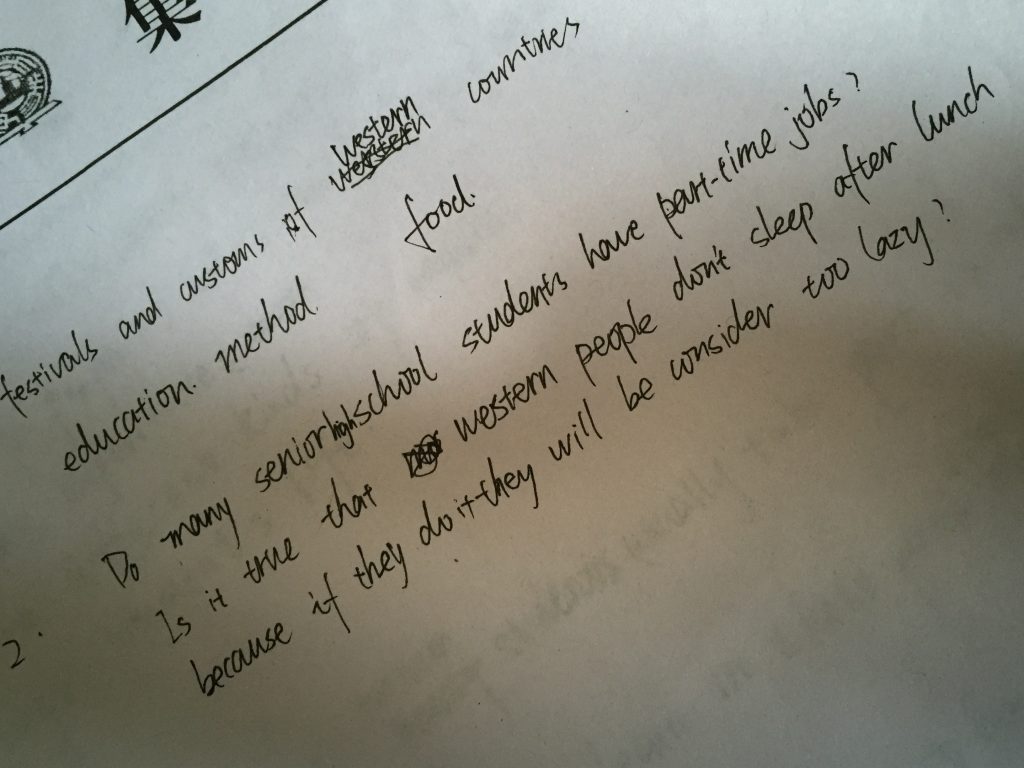 集
festivals and customs of western countries
education. method. food.
Do many senior high school students have part-time jobs?
2. Is it true that western people don't sleep after lunch
because if they do it they will be consider too lazy?